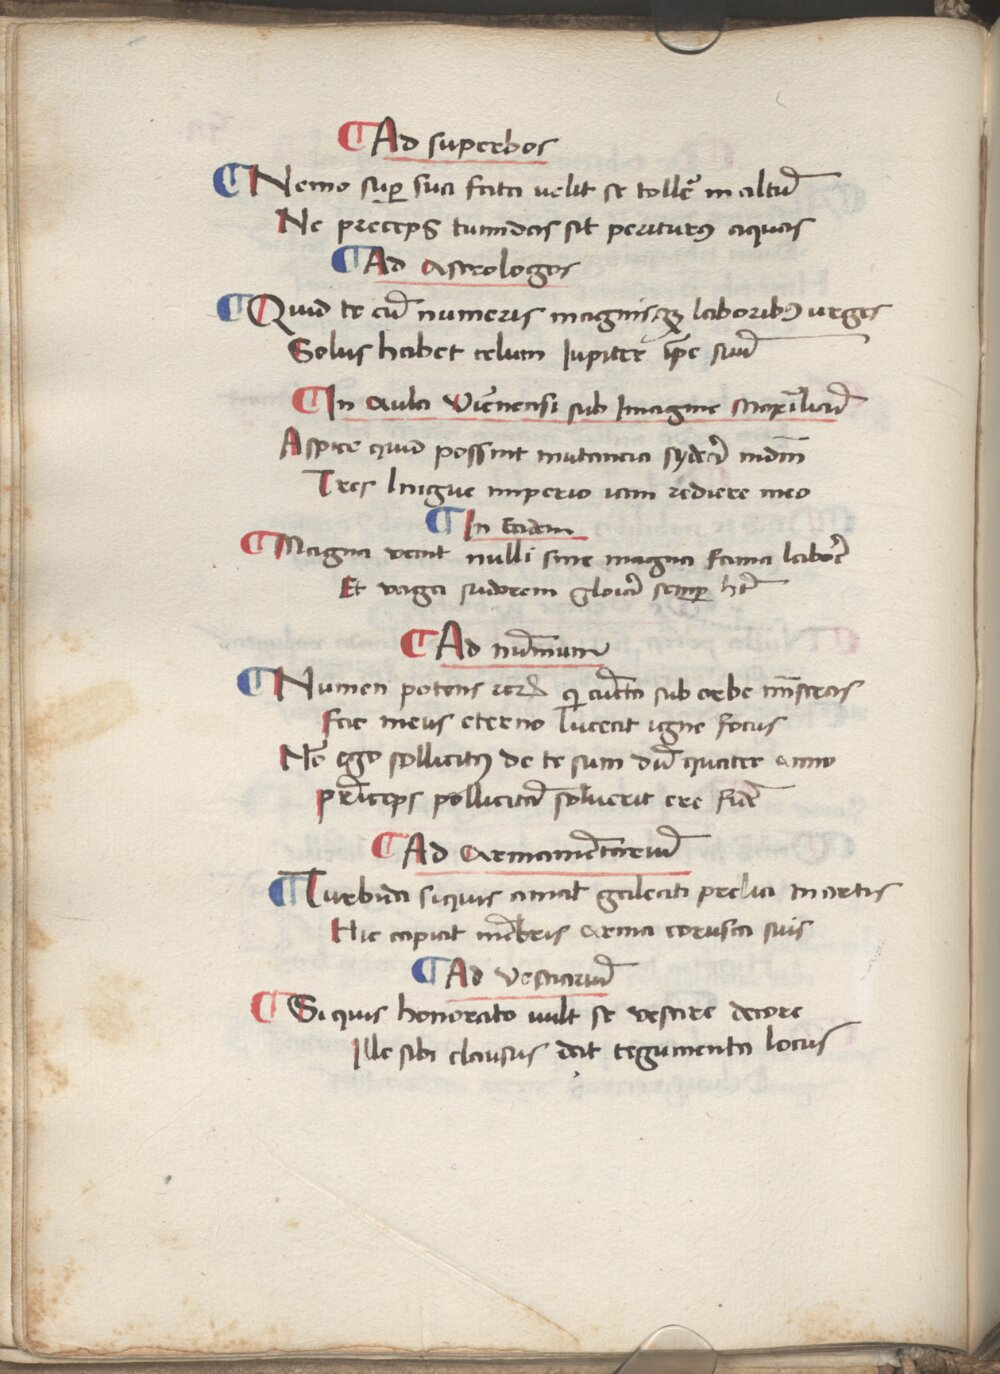 ¶Ad superbos
¶Nemo sup̱ sua fata velit se tollē in altū
Ne preceps tumidas sit periturꝰ aquas
¶Ad astrologos
¶Quid te cū numeris magnisqꝫ laboribꝰ urges
Solus habet celum Jupiter ip̄e suū
¶In aula Viēnensi sub Imagine Maximiliani
Aspice quid possint mutancia sydera
Tres linguae imperio iam rediere meo
¶In Eadem
¶Magna venit nulli sine magna fama labore
Et vaga sudorem gloria semꝑ hꝫ
¶Ad nūmum
¶Numen potens reꝝ qui cūcta sub orbe mīstras
Fac meus eterno luceat igne focus
Nō ego sollicitꝰ de te sum dū quater anno
prīceps pollicitā soluerit ere fidē
¶Ad armamētariū
¶Turbida siquis amat galeati prelia martis
Hic capiat mēbris arma corusca suis
¶Ad vestiariū
¶Si quis honorato vult se vestire decore
Ille sibi clausus dat tegumenta locus